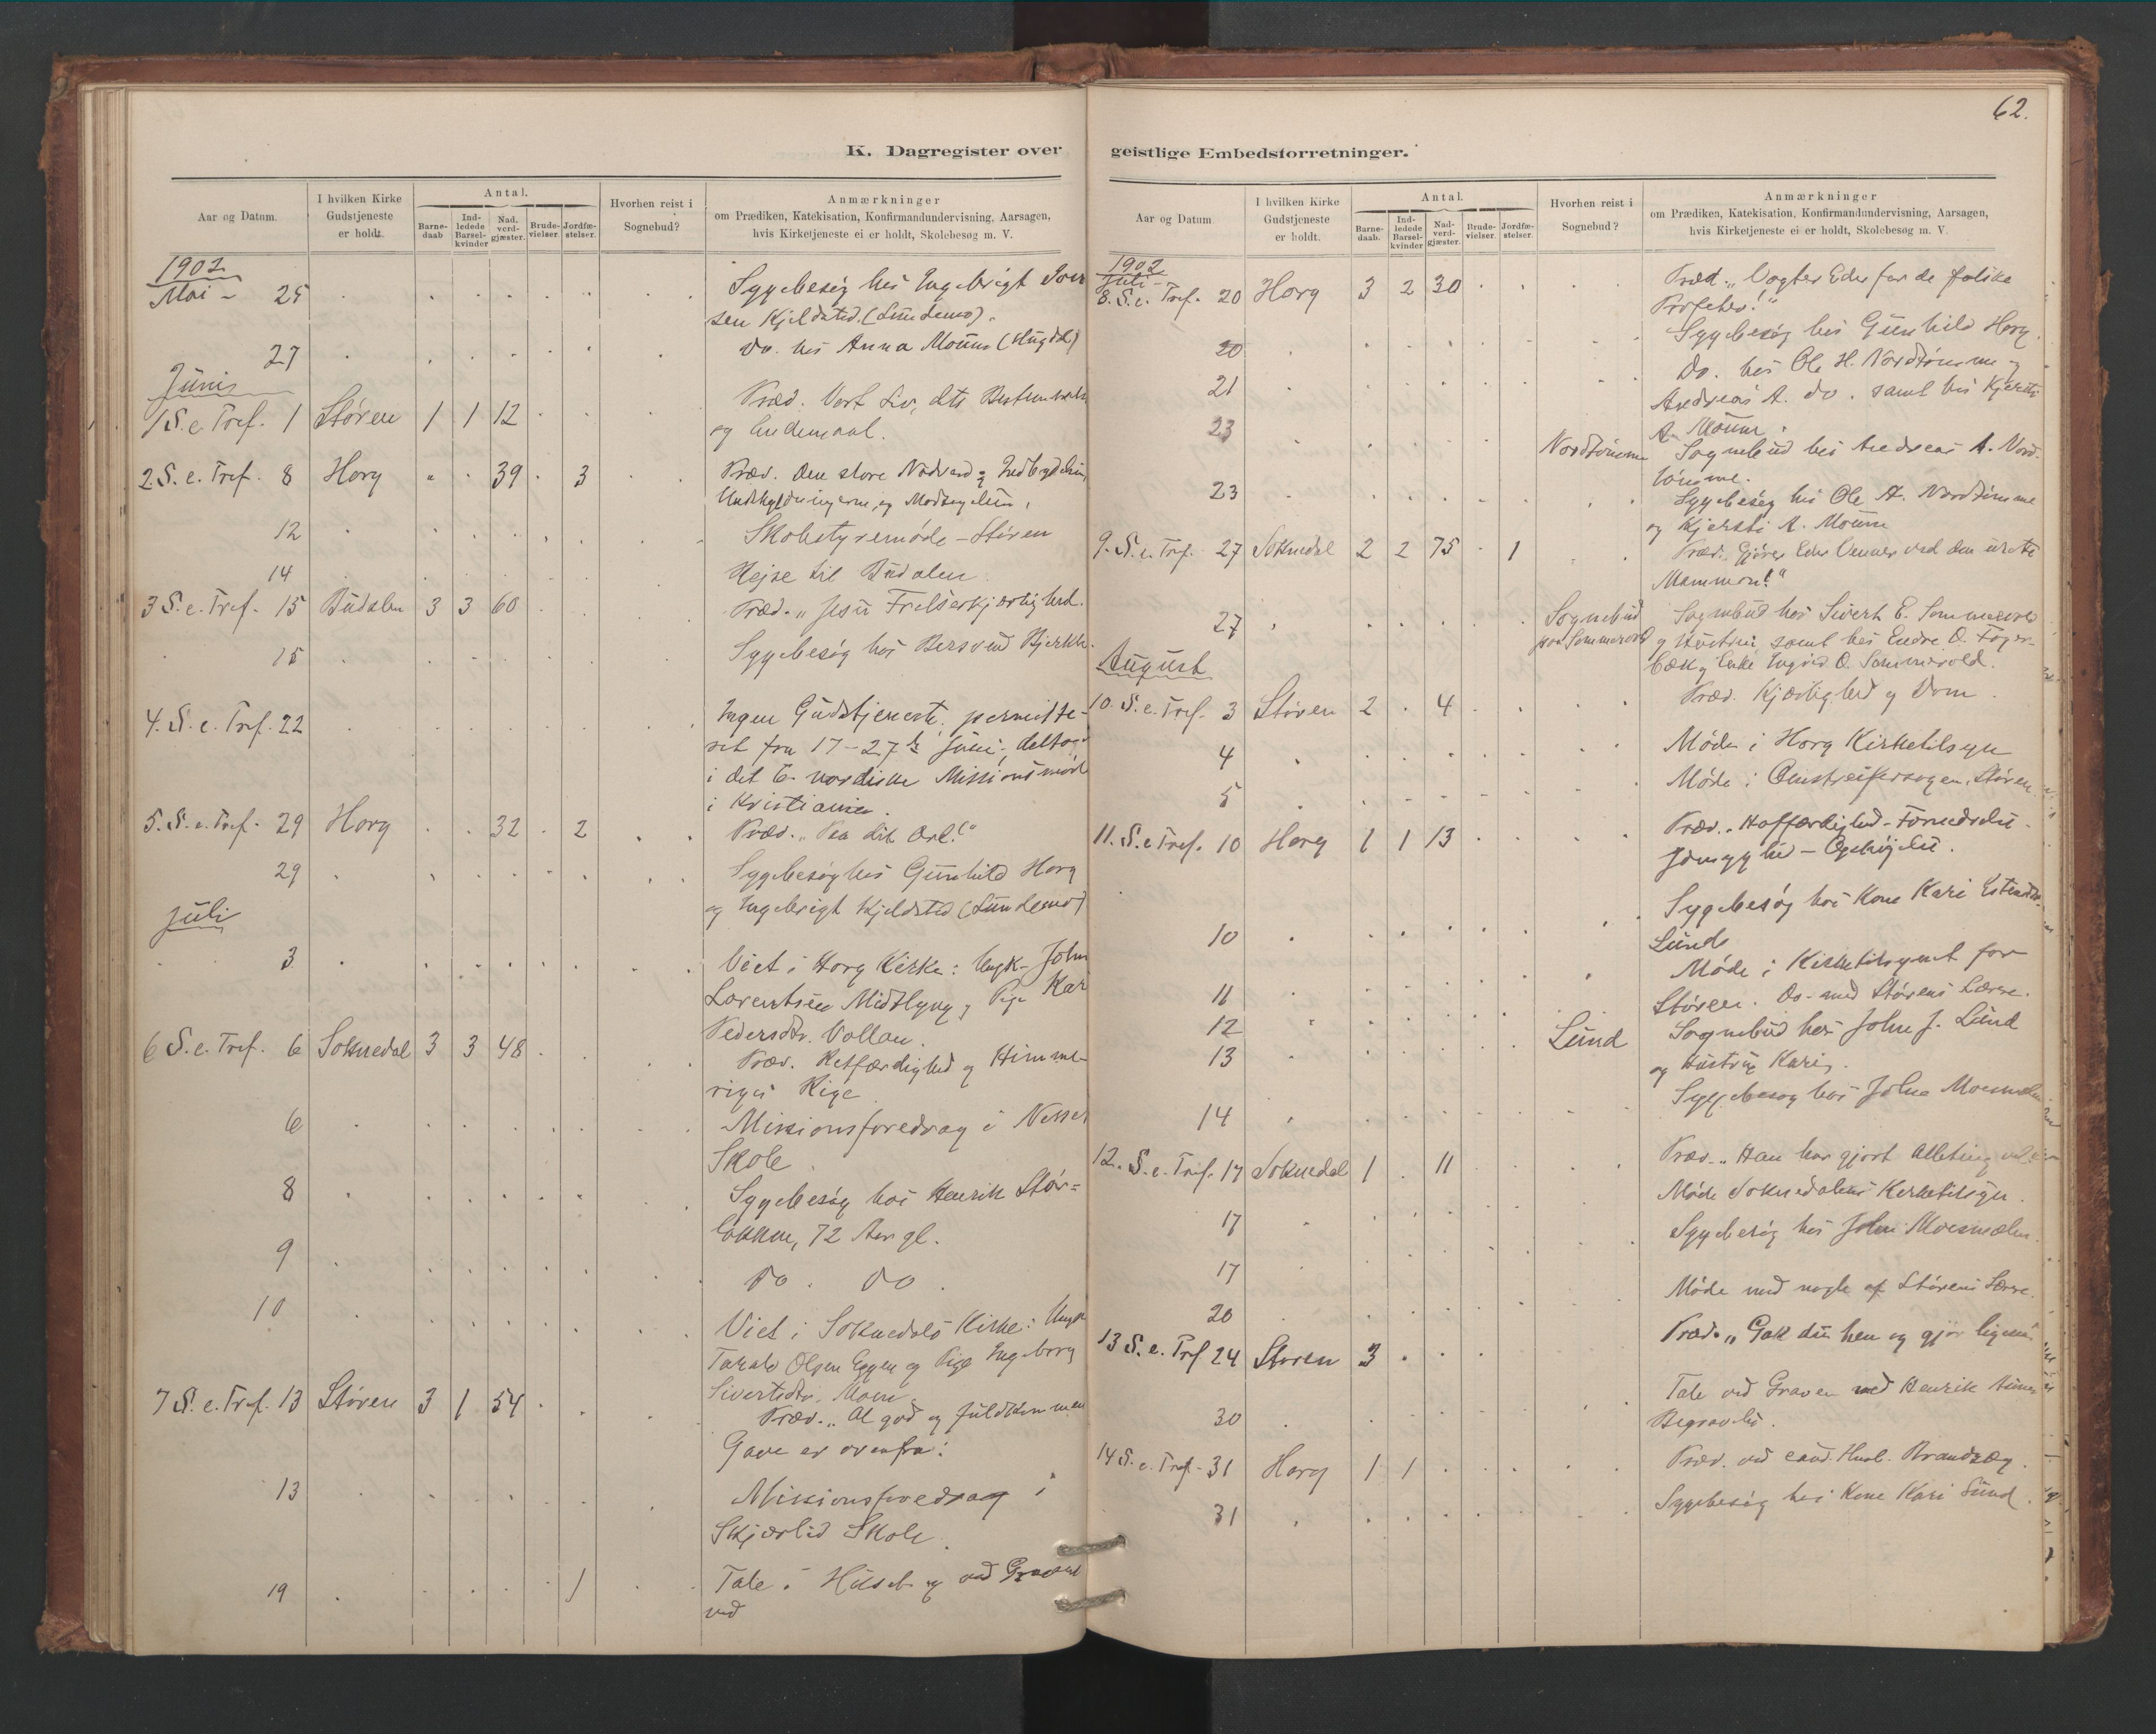 K. Dagregister over
Aar og Datum.
I hvilken Kirke Gudstjeneste er holdt.
Antal.
Barne-daab
Ind-ledede Barsel-kvinder
Nad-verd-gjæster.
Brude-vielser.
Jordfæ-stelser.
Hvorhen reist i Sognebud?
Anmærkninger
om Prædiken, Katekisation, Konfirmandundervisning, Aarsagen,
hvis Kirketjeneste ei er holdt, Skolebesøg m. V.
1902
Mai - 25 Sygebesøg hos Ingebrigt
sen Kjeldstad. (Lundemo).
27 Do. hos Anna Moum (Hugdal)
Juni
1 S. e. Tref. 1 Støren 1 1 12 Præd. Vort Liv, dets
og Endemaal.
2 S. e. Tref. 8 Horg 39 3 Præd. Den store Nadverd
Undskyldningerne, og
12 Skolestyremøde - Støren
14 Rejse til Budalen
3 S. e. Tref. 15 Budalen 3 3 60 Præd. „Jesu Frelserkjærlighed.
15 Sygebesøg hos Bersvend
4. S. e. Tref. 22 Ingen Gudstjeneste. permitte-
ret fra 17-27de Juni; deltog
i det 6. nordiske Missionsmøde
i Kristiania.
5. S. e. Tref. 29 Horg 32 2 Præd. „Paa dit Ord!“
29 Sygebesøg hos Gunhild Horg
og Ingebrigt Kjeldstad (Lundemo)
Juli
3 Viet i Horg Kirke: Ungk. John
Lorentsen Midtlyng og Pige Kari
Pedersdtr. Vollan.
6 S. e. Tref. 6 Soknedal 3 3 48 Præd. Retfærdighed og Himme-
riges Rige
6 Missionsforedrag i
Skole
8 Sygebesøg hos Henrik Stør-
løkken, 72 Aar gl.
9 Do. Do.
10 Viet i Soknedals Kirke: Ungk
Olsen Eggen og Pige Ingeborg
Sivertsdtr. Moen
7 S. e. Tref. 13 Støren 3 1 54 Præd. „Al god og fuldkommen
Gave er ovenfra:
13 Missionsforedrag i
Skjærlid Skole
19 1 Tale i Huset og ved Graven
ved
62.
geistlige Embedsforretninger.
Aar og Datum
I hvilken Kirke Gudstjeneste er holdt.
Antal.
Barne-daab.
Ind-ledede Barsel-kvinder
Nad-verd-gjæster.
Brude-vielser.
Jordfæ-stelser.
Hvorhen reist i Sognebud?
Anmærkninger
om Prædiken, Katekisation, Konfirmandundervisning, Aarsagen,
hvis Kirketjeneste ei er holdt, Skolebesøg m. V.
1902
Juli -
8. S. e. Tref. 20 Horg 3 2 30 Præd. „Vogter Eder for de falske
Profeter!“
20 Sygebesøg hos Gunhild Horg.
21 Do. hos Ole H. Nordtømme og
Andreas A. do. samt hos Kjersti
A. Moum.
23 Nordtømme Sognebud hos Andreas A. Nord-
tømme.
23 Sygebesøg hos Ole A. Nordtømme
og Kjersti A. Moum
9. S. e. Tref. 27 Soknedal 2 2 75 1 Præd. „Gjører Eder Venner ved den urette
Mammon!“
27 Sognebud paa Sommervold Sognebud hos Sivert E. Sommervold
og Hustru samt hos Endre O. Fager-
bæk og Enke Ingrid O. Sommervold.
August
10. S. e. Tref. 3 Støren 2 4 Præd. Kjærlighed og Dom.
4 Møde i Horg Kirketilsyn
5 Møde i Støren.
11. S. e. Tref. 10 Horg 1 1 13 Præd. „Hoffærdighed - Fornedrelse -
Ydmyghed - Ophøjelse.
10 Sygebesøg hos Kone Kari
Lund
11 Møde i Kirketilsynet for
Støren.
12 Do. med Størens Lærere.
13 Lund Sognebud hos John J. Lund
og Hustru Kari.
14 Sygebesøg hos John
12. S. e. Tref. 17 Soknedal 1 11 Præd. „Han har gjort alleting vel
17 Møde Soknedalens Kirketilsyn.
17 Sygebesøg hos John
20 Møde med nogle af Størens Lærere.
13 S. e. Tref 24 Støren 3 Præd. „Gak du hen og gjør ligesaa
30 Tale ved Graven ved Henrik
Begravelse.
14 S. e. Tref. 31 Horg 1 1 Præd. ved cand. Brandzæg.
31 Sygebesøg hos Kone Kari Lund.